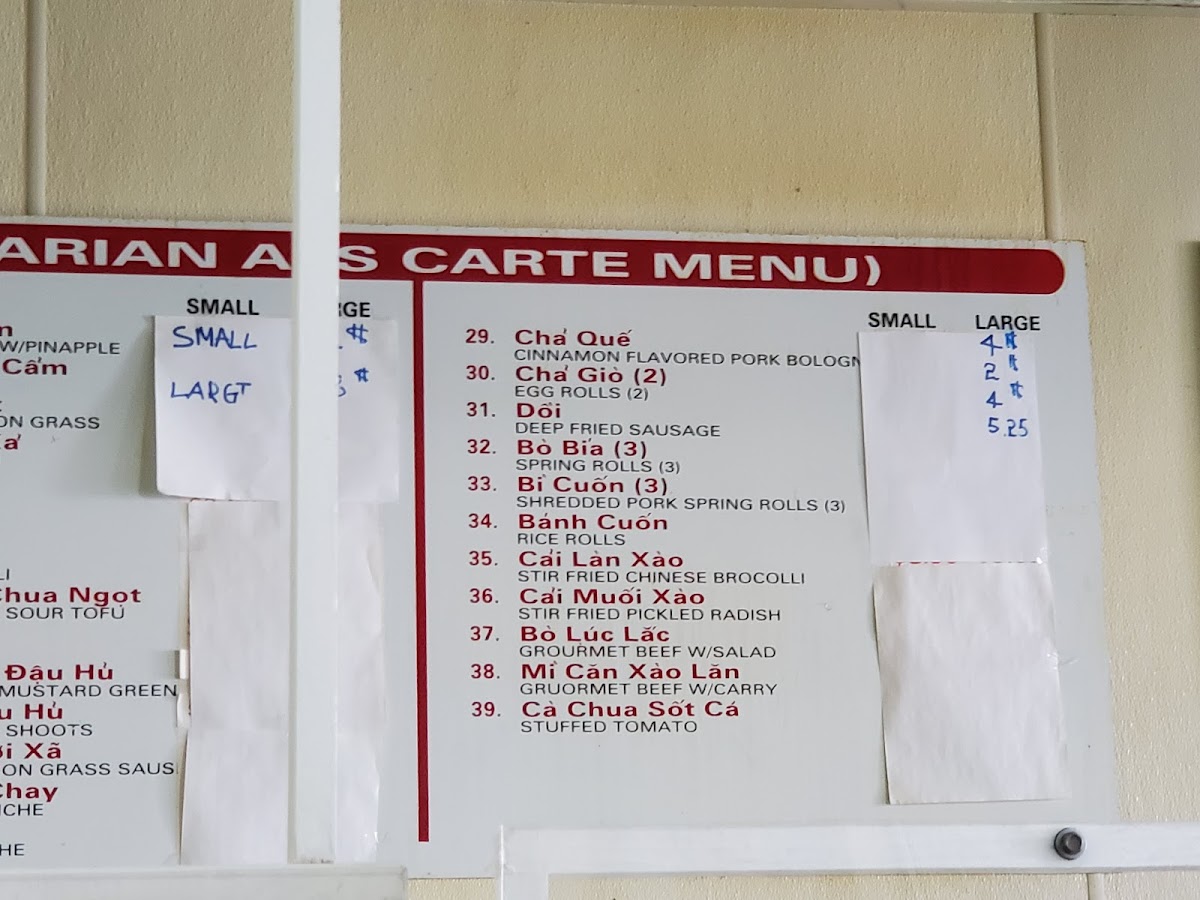 ARIAN A S CARTE MENU)
SMALL GE
n
W/PINAPPLE
Cẩm
ON GRASS
LI
Chua Ngọt
SOUR TOFU
Đậu Hủ
MUSTARD GREEN
u Hủ
SHOOTS
i Xã
ON GRASS SAUS
Chay
ICHE
HE
SMALL $
LARGT $
SMALL LARGE
29. Chả Quế
CINNAMON FLAVORED PORK BOLOGN
30. Chả Giò (2)
EGG ROLLS (2)
31. Dồi
DEEP FRIED SAUSAGE
32. Bò Bía (3)
SPRING ROLLS (3)
33. Bì Cuốn (3)
SHREDDED PORK SPRING ROLLS (3)
34. Bánh Cuốn
RICE ROLLS
35. Cải Làn Xào
STIR FRIED CHINESE BROCOLLI
36. Cải Muối Xào
STIR FRIED PICKLED RADISH
37. Bò Lúc Lắc
GROURMET BEEF W/SALAD
38. Mì Căn Xào Lăn
GRUORMET BEEF W/CARRY
39. Cà Chua Sốt Cá
STUFFED TOMATO
4$
2$
4$
5.25